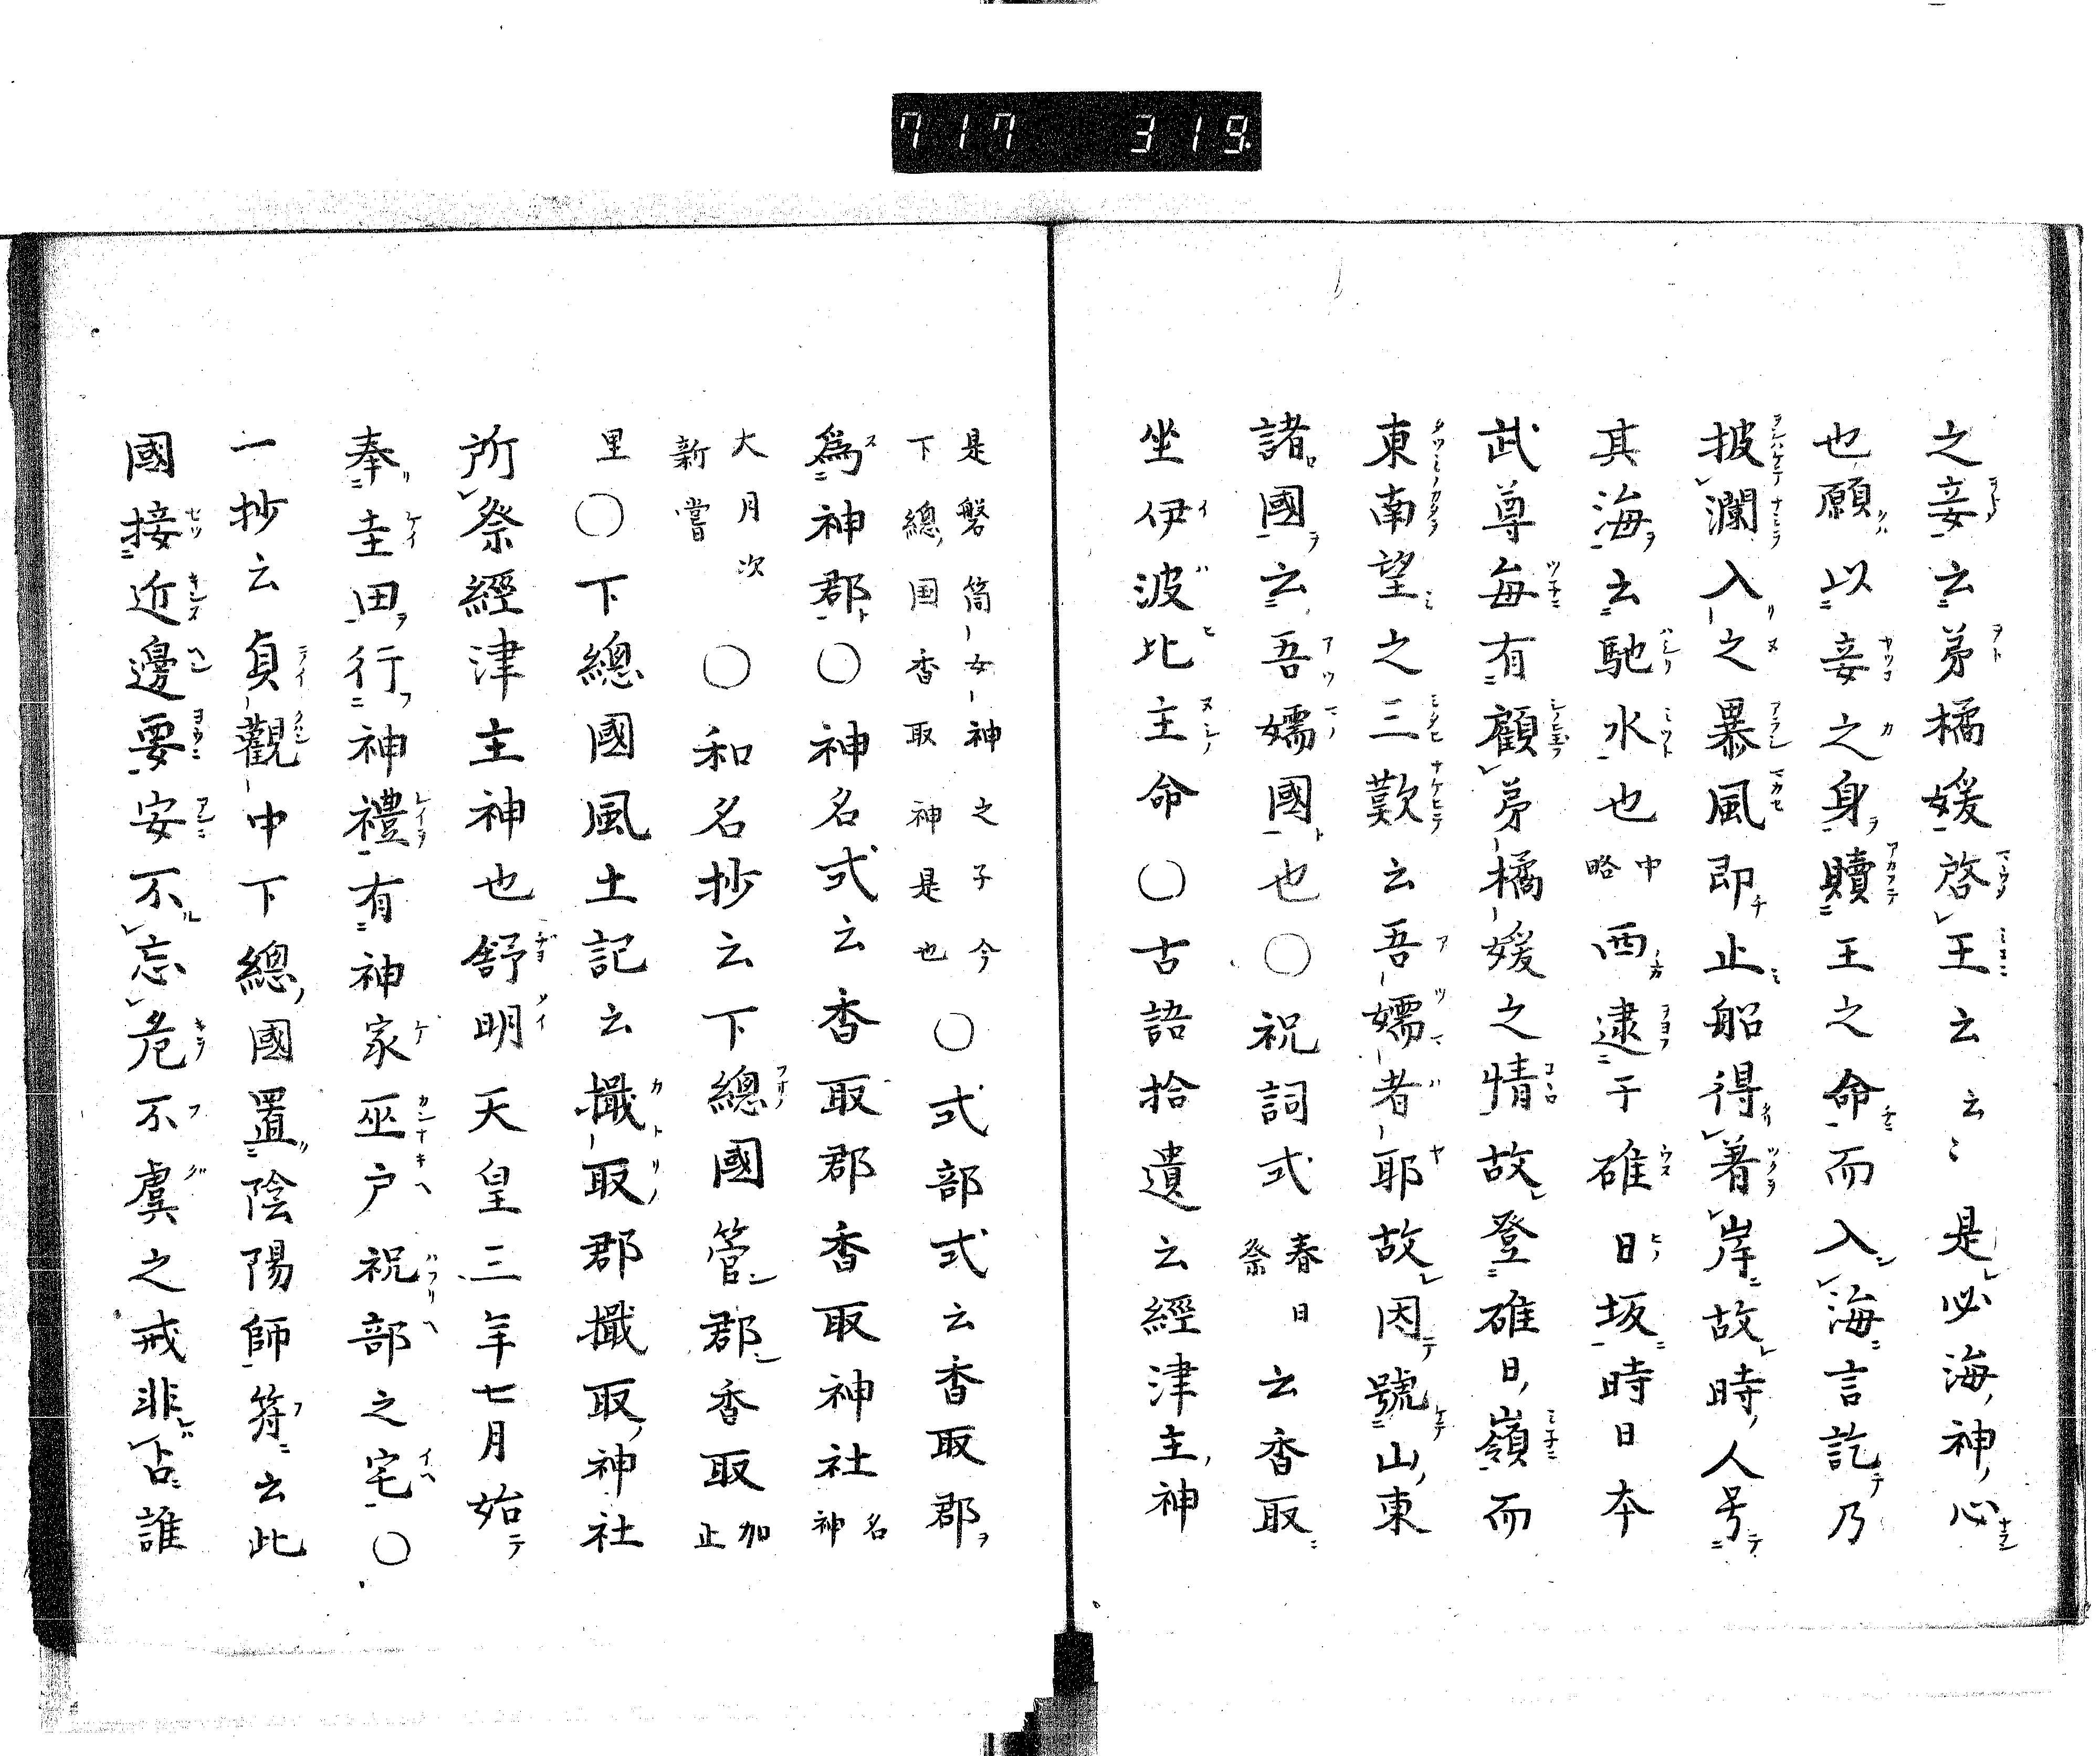 717 319
之妾云弟橘媛啓王云云〻是必海神心
也願以妾之身贖王之命而入海言訖乃
披瀾入之暴風即止船得着岸故時人号
其海云馳水也中略西逮于碓日坂時日本
武尊毎有顧弟橘媛之情故登碓日嶺而
東南望之三歎云吾嬬者耶故因號山東
諸國云吾嬬國也〇祝詞式春日祭云香取
坐伊波比主命〇古語拾遺云經津主神
是磐筒女神之子今下總国香取神是也〇式部式云香取郡
為神郡〇神名式云香取郡香取神社名神
大月次新嘗〇和名抄云下總國管郡香取加止
里〇下總國風土記云擑取郡擑取神社
所祭經津主神也舒明天皇三年七月始
奉圭田行神禮有神家巫戸祝部之宅〇
一抄云貞觀中下總國置陰陽師符云此
國接近邊要安不忘危不虞之戒非占誰